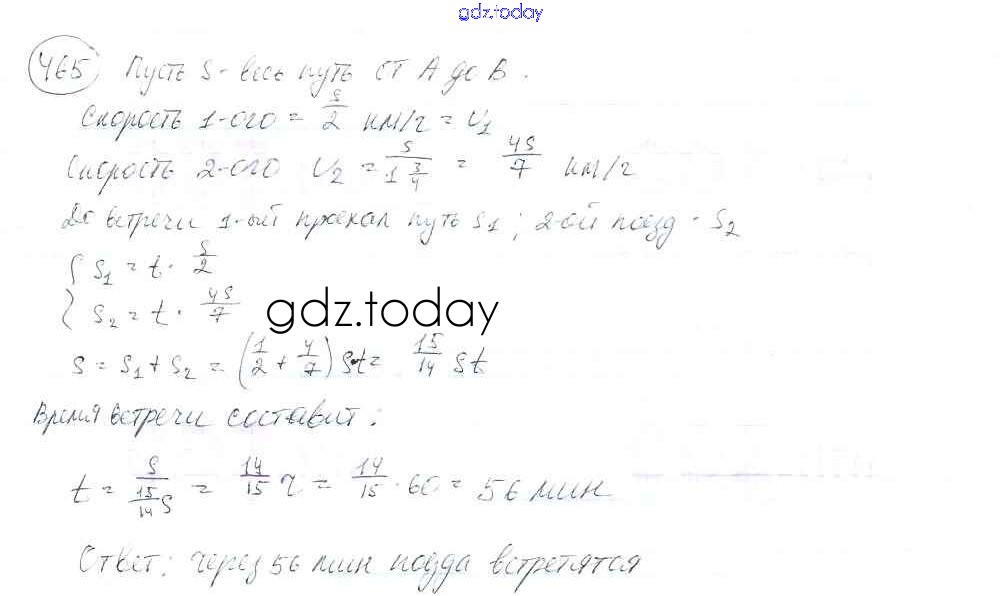 gdz.today
465 Пусть S - весь путь от А до В.
Скорость 1-ого = S/2 км/ч = v₁
Скорость 2-ого v₂ = S/(1 3/4) = 4S/7 км/ч
До встречи 1-ый проехал путь S₁; 2-ой поезд - S₂
{ S₁ = t · S/2
S₂ = t · 4S/7
gdz.today
S = S₁ + S₂ = (1/2 + 4/7) St = 15/14 St
Время встречи составит:
t = S/(15/14 S) = 14/15 ч = 14/15 · 60 = 56 мин
Ответ: через 56 мин поезда встретятся